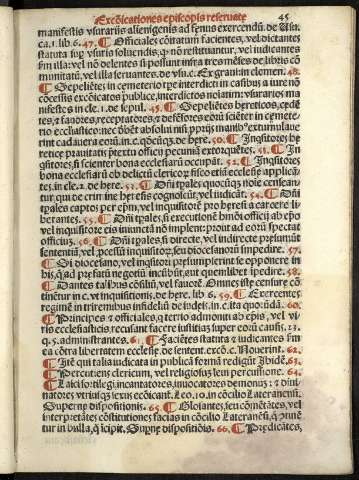 Excōicationes episcopis reseruate 45
manifestis vsurariis alienigenis ad fenus exercendū. de Usu.
ca. 1. lib. 6. 47. ¶ Officiales cōitatum facientes, vel dictantes
statuta sup vsuris soluendis, q nō restituantur, vel iudicantes
fm illa: vel nō delentes si possunt infra tres mēses de libris cō
munitatū, vel illa seruantes. de vsu. c. Ex graui. in clemen. 48.
¶ Sepeliētes in cemeterio tpe interdicti in casibus a iure nō
cōcessis excōicatos publice, interdictos nēatim: vsurarios ma
nifestos in cle. 1. de sepul. 45. ¶ Sepeliētes hereticos, credē
tes, & fautores, receptatores, & defēsores eorū sciēter in cemete
rio ecclastico: nec dēbēt absolui nisi pprijs manib9 extumulaue
rint cadauera eorū. in c. quicūqz. de here. 50. ¶ Inqsitores he
reticē prauitatis pretextu officij pecuniā extorquētes. 51. ¶ In
qsitores, si scienter bona ecclesiarū occupāt. 52. ¶ Inqsitores
bona ecclesiarū ob delictū clericoꝝ fisco etiā ecclesie applicā
tes. in cle. 2. de here. 53. ¶ Dñi tpales quocūqz noīe censean
tur qui de crimīe heresis cognoscūt, vel iudicāt. 54. ¶ Dñi
tpales captos per epm, vel inquisitorē pro heresi a carcere li
berantes. 55. ¶ Dñi tpales, si executionē sibi officij ab epo
vel inquisitore eis iniunctā nō implent: prout ad eorū spectat
officiū. 56. ¶ Dñi tpales, si directe, vel indirecte presumūt
sententiā, vel pcessū inquisitoꝝ, seu diocesanoꝝ impedire. 57.
¶ Qui diocesano, vel inquisitori presumpserint se opponere in
his, q ad prefatū negotiū incūbūt, aut quemlibet ipedire. 58.
¶ Dantes talibus cōsiliū, vel fauorē. Omnes iste censure cō
tinētur in c. vt inquisitionis, de here. lib. 6. 59. ¶ Exercentes
regimē in triremibus infideliū de iudeis. in c. ita quorūdā. 60.
¶ Principes & officiales, q tertio admoniti ab epis, vel vi
ris ecclesiasticis, recusant facere iustitiā super eorū causis. 23.
q. 5. administrantes. 61. ¶ Faciētes statuta & iudicantes fm
ea cōtra libertatem ecclesie. de senten. excō. c. Nouerit. 62.
¶ Itē qui talia iudicata in publicā formā redigūt. Ibidē. 63.
¶ Percutiens clericum, vel religiosum leui percussione. 64.
¶ Laici sortilegi, incantatores, inuocatores demonū: & diui
natores vtriusqz sexus excōicant. Leo. 10. in cōcilio Lateranensi.
Superne dispositionis. 65. ¶ Glosantes, seu commētates, vel
interpretātes cōstitutiones factas in cōcilio Lateranēsi, q cōtinē
tur in bulla, q icipit. Superne dispositiōis. 66. ¶ Predicātes,